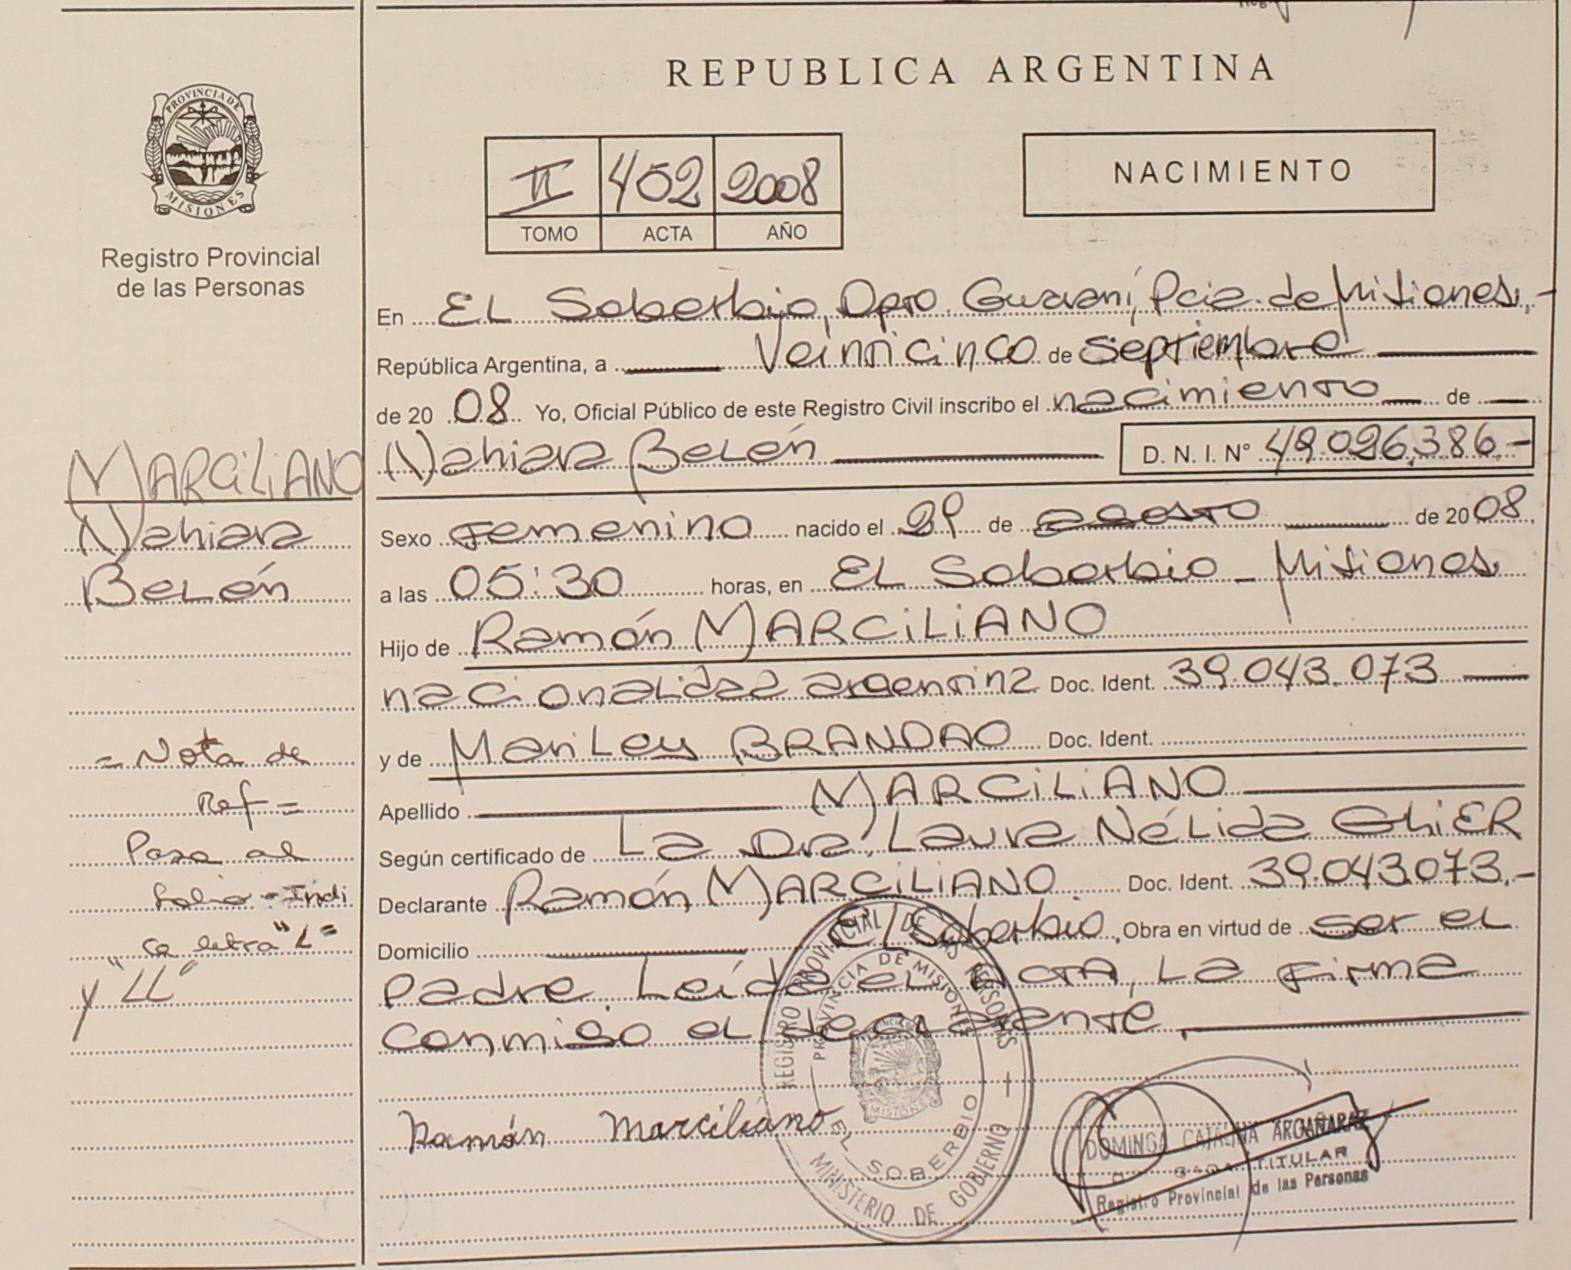 REPUBLICA ARGENTINA
PROVINCIA DE
MISIONES
Registro Provincial
de las Personas
II 402 2008
TOMO ACTA AÑO
NACIMIENTO
En EL Soberbio, Dpto. Guaraní, Pcia. de Misiones,-
República Argentina, a Veinticinco de septiembre
de 20 08 Yo, Oficial Público de este Registro Civil inscribo el nacimiento de
Nahiara Belén D. N. I. N° 49.026.386.-
Sexo Femenino nacido el 29 de agosto de 20 08.
a las 05:30 horas, en EL Soberbio - Misiones
Hijo de Ramón MARCILIANO
nacionalidad argentina Doc. Ident. 39.043.073
y de Mariley BRANDAO Doc. Ident.
Apellido MARCILIANO
Según certificado de La Dra. Laura Nélida
Declarante Ramón MARCILIANO Doc. Ident. 39.043.073.-
Domicilio El Soberbio. Obra en virtud de ser el
padre. Leída el ACTA, La firma
conmigo el declarante.
Ramón Marciliano
MARCILIANO
Nahiara
Belén
= Nota de
Ref =
Pasa al
folio - Indi
ce letra "L"
y "LL"
REGISTRO PROVINCIAL DE LAS PERSONAS
PROVINCIA DE MISIONES
MISIONES
EL SOBERBIO
MINISTERIO DE GOBIERNO
DOMINGA CATALINA ARGAÑARAZ
TITULAR
Registro Provincial de las Personas